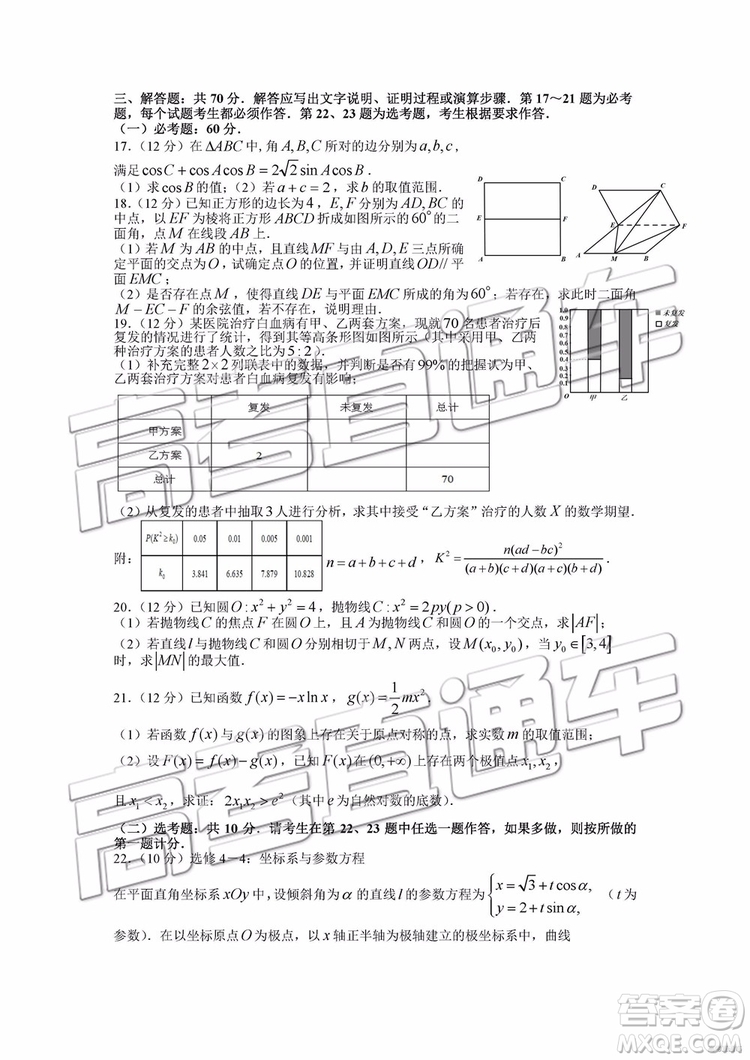 三、解答题：共 70 分．解答应写出文字说明、证明过程或演算步骤．第 17～21 题为必考
题，每个试题考生都必须作答．第 22、23 题为选考题，考生根据要求作答．
（一）必考题：60 分．
17．（12 分）在 ΔABC 中，角 A,B,C 所对的边分别为 a,b,c，
满足 cosC + cosAcosB = 2√2 sinAcosB．
（1）求 cosB 的值；（2）若 a+c=2，求 b 的取值范围．
18．（12 分）已知正方形的边长为 4，E,F 分别为 AD,BC 的
中点，以 EF 为棱将正方形 ABCD 折成如图所示的 60° 的二
面角，点 M 在线段 AB 上．
（1）若 M 为 AB 的中点，且直线 MF 与由 A,D,E 三点所确
定平面的交点为 O，试确定点 O 的位置，并证明直线 OD// 平
面 EMC；
（2）是否存在点 M，使得直线 DE 与平面 EMC 所成的角为 60°；若存在，求此时二面角
M－EC－F 的余弦值，若不存在，说明理由．
D C
E F
A B
D C
E F
A M B
19．（12 分）某医院治疗白血病有甲、乙两套方案，现就 70 名患者治疗后
复发的情况进行了统计，得到其等高条形图如图所示（其中采用甲、乙两
种治疗方案的患者人数之比为 5:2）．
（1）补充完整 2×2 列联表中的数据，并判断是否有 99% 的把握认为甲、
乙两套治疗方案对患者白血病复发有影响；
1.0
0.9
0.8
0.7
0.6
0.5
0.4
0.3
0.2
0.1
O 甲 乙
未复发
复发
复发 未复发 总计
甲方案
乙方案 2
总计 70
（2）从复发的患者中抽取 3 人进行分析，求其中接受“乙方案”治疗的人数 X 的数学期望．
附：
P(K²≥k₀) 0.05 0.01 0.005 0.001
k₀ 3.841 6.635 7.879 10.828
n=a+b+c+d，K² = n(ad−bc)² / (a+b)(c+d)(a+c)(b+d)．
20．（12 分）已知圆 O:x²+y²=4，抛物线 C:x²=2py(p>0)．
（1）若抛物线 C 的焦点 F 在圆 O 上，且 A 为抛物线 C 和圆 O 的一个交点，求 |AF|；
（2）若直线 l 与抛物线 C 和圆 O 分别相切于 M,N 两点，设 M(x₀,y₀)，当 y₀∈[3,4]
时，求 |MN| 的最大值．
21．（12 分）已知函数 f(x)=−x ln x，g(x)=1/2 mx²．
（1）若函数 f(x) 与 g(x) 的图象上存在关于原点对称的点，求实数 m 的取值范围；
（2）设 F(x)=f(x)−g(x)，已知 F(x) 在 (0,+∞) 上存在两个极值点 x₁,x₂，
且 x₁<x₂，求证：2x₁x₂>e²（其中 e 为自然对数的底数）．
（二）选考题：共 10 分．请考生在第 22、23 题中任选一题作答，如果多做，则按所做的
第一题计分．
22．（10 分）选修 4－4：坐标系与参数方程
在平面直角坐标系 xOy 中，设倾斜角为 α 的直线 l 的参数方程为 {x=√3+t cosα, y=2+t sinα, （t 为
参数）．在以坐标原点 O 为极点，以 x 轴正半轴为极轴建立的极坐标系中，曲线
高考直通车
高考直通车
答案圈
MXQE.COM